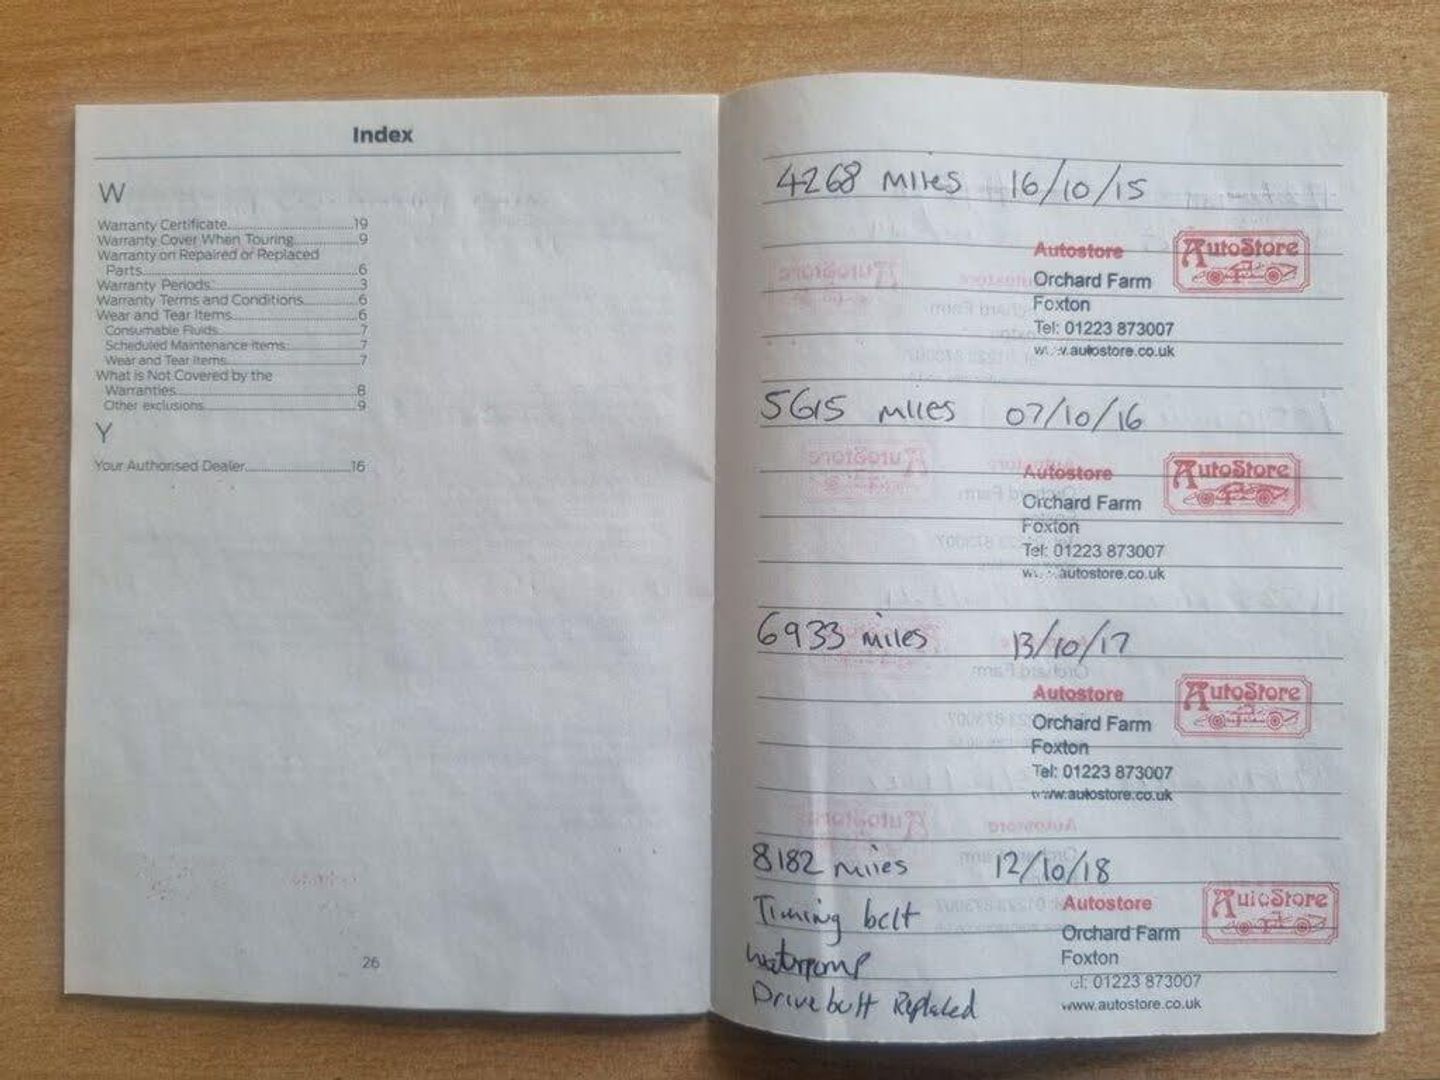 Index
W
Warranty Certificate.....19
Warranty Cover When Touring.....9
Warranty on Repaired or Replaced
Parts.....6
Warranty Periods.....3
Warranty Terms and Conditions.....6
Wear and Tear Items.....6
Consumable Fluids.....7
Scheduled Maintenance Items.....7
Wear and Tear Items.....7
What is Not Covered by the
Warranties.....8
Other exclusions.....9
Y
Your Authorised Dealer.....16
26
4268 miles 16/10/15
Autostore AutoStore
Orchard Farm
Foxton
Tel: 01223 873007
www.autostore.co.uk
5615 miles 07/10/16
Autostore AutoStore
Orchard Farm
Foxton
Tel: 01223 873007
www.autostore.co.uk
6933 miles 13/10/17
Autostore AutoStore
Orchard Farm
Foxton
Tel: 01223 873007
www.autostore.co.uk
8182 miles 12/10/18
Timing belt Autostore AutoStore
Orchard Farm
Waterpump Foxton
Tel: 01223 873007
Drive belt Replaced www.autostore.co.uk